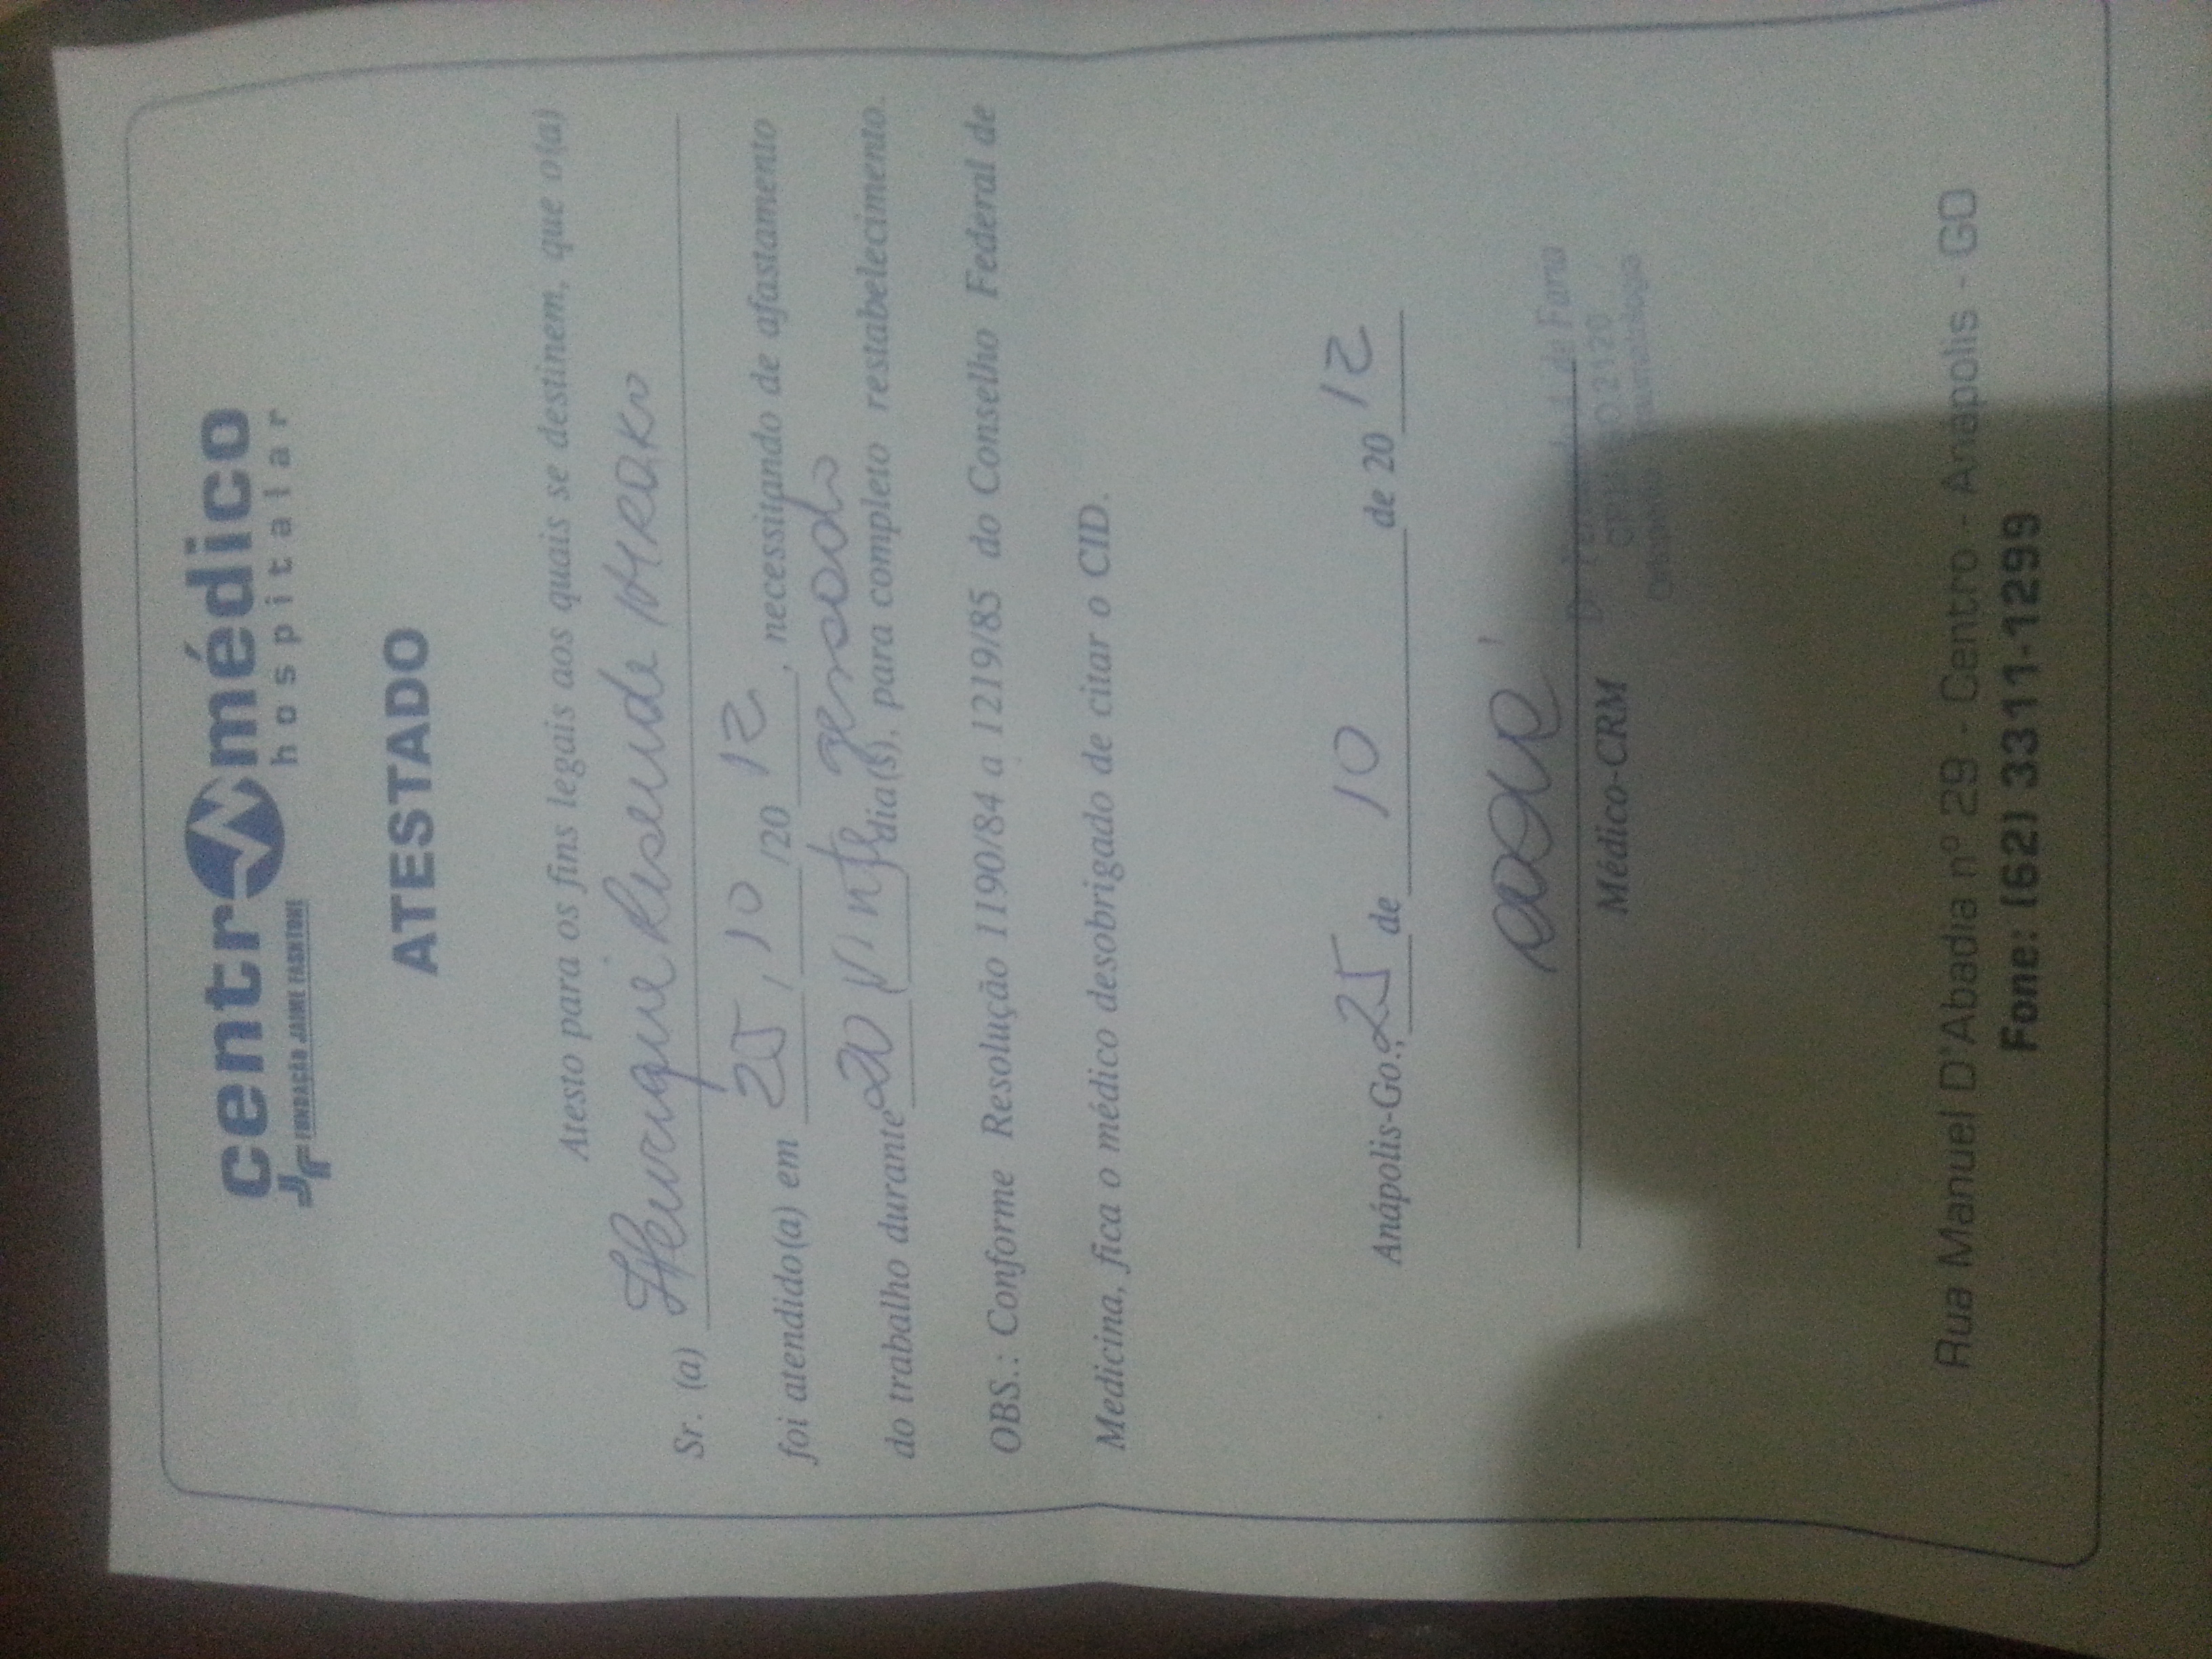 centromédico
hospitalar
FUNDAÇÃO JAIME FASNTONE
ATESTADO
Atesto para os fins legais aos quais se destinem, que o(a)
Sr. (a) Henrique Resende
foi atendido(a) em 25/10/2012, necessitando de afastamento
gessado
do trabalho durante 20 (vinte) dia(s), para completo restabelecimento.
OBS.: Conforme Resolução 1190/84 a 1219/85 do Conselho Federal de
Medicina, fica o médico desobrigado de citar o CID.
Anápolis-Go., 25 de 10 de 2012
Médico-CRM
de Faria
2120
Ortopedia Traumatologia
Rua Manuel D'Abadia nº 29 - Centro - Anápolis - GO
Fone: (62) 3311-1299